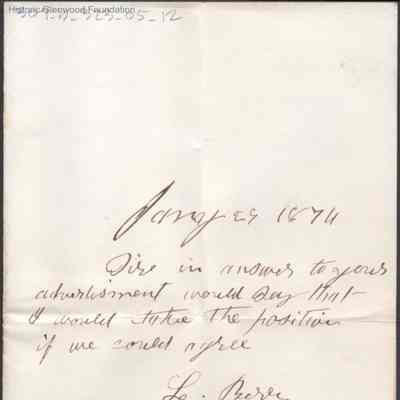 Historic Glenwood Foundation
Jany 29 1874
Sire in answer to yours
advertisment would Say that
I would take the position
if we could agree